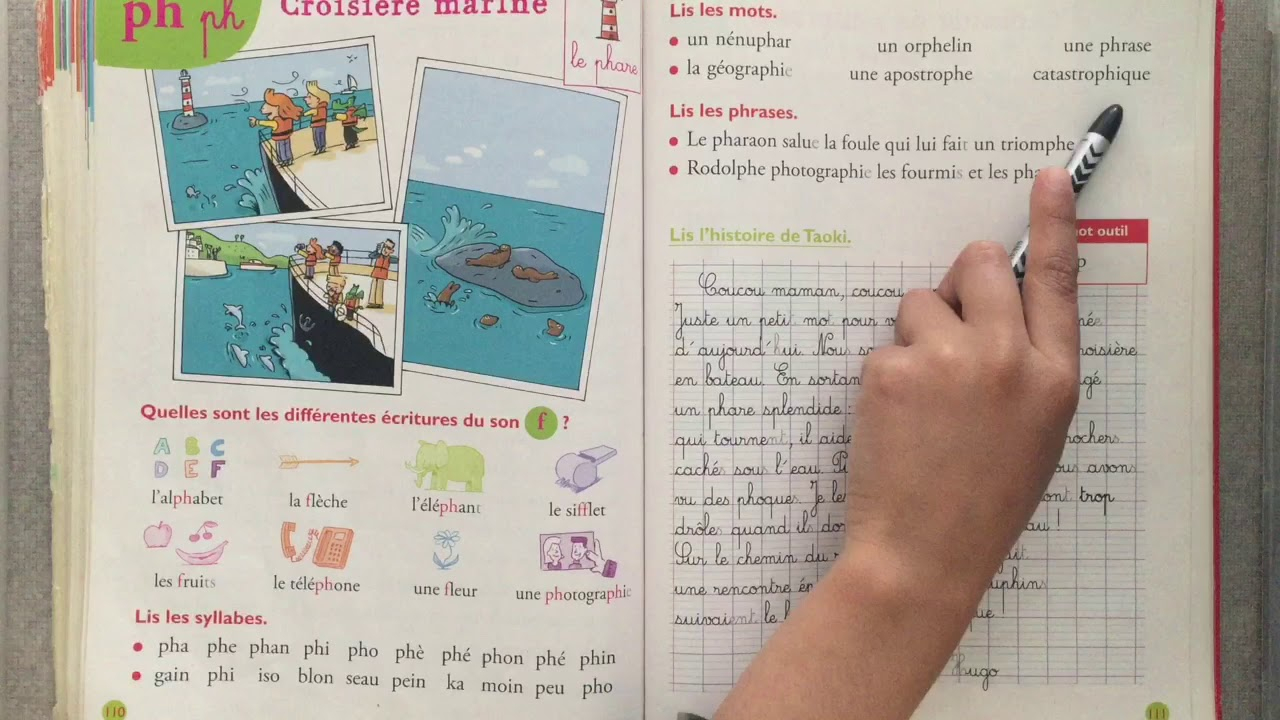 ph ph
Croisière marine
le phare
Quelles sont les différentes écritures du son f ?
A B C
D E F
l'alphabet
la flèche
l'éléphant
le sifflet
les fruits
le téléphone
une fleur
une photographie
Lis les syllabes.
• pha phe phan phi pho phè phé phon phé phin
• gain phi iso blon seau pein ka moin peu pho
110
Lis les mots.
• un nénuphar un orphelin une phrase
• la géographie une apostrophe catastrophique
Lis les phrases.
• Le pharaon salue la foule qui lui fait un triomphe
• Rodolphe photographie les fourmis et les
Lis l'histoire de Taoki.
outil
Coucou maman, coucou
Juste un petit mot pour
d'aujourd'hui. Nous
en bateau. En
un phare splendide :
qui tournent, il rochers
cachés sous l'eau. avons
vu des phoques. Je trop
drôles quand ils
Sur le chemin du
une rencontre
suivaient le
Hugo
111